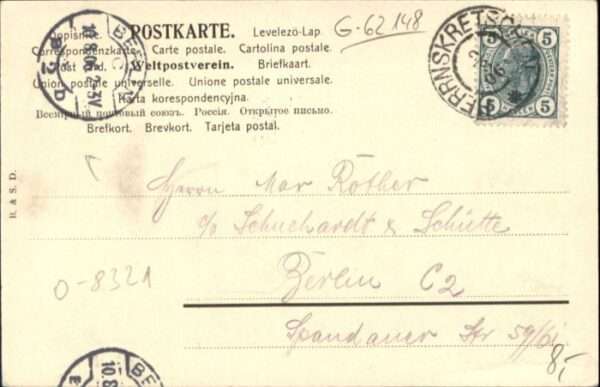 POSTKARTE. Levelező-Lap. G-62148
Dopisnice.
Correspondenzkarte. Carte postale. Cartolina postale.
Post card. Weltpostverein. Briefkaart.
Union postale universelle. Unione postale universale.
Karta korespondencyjna.
Всемірный почтовый союзъ. Россія. Открытое письмо.
Brefkort. Brevkort. Tarjeta postal.
BERLIN C
10.8.06. 2-3V
2 b
HERRNSKRETSCHEN
06
5 5
5 5
B. & S. D.
Herrn Max Röther
c/o Schuchardt & Schütte
O-8321
Berlin C2
Spandauer Str 59/61
8,-
BE
10.8